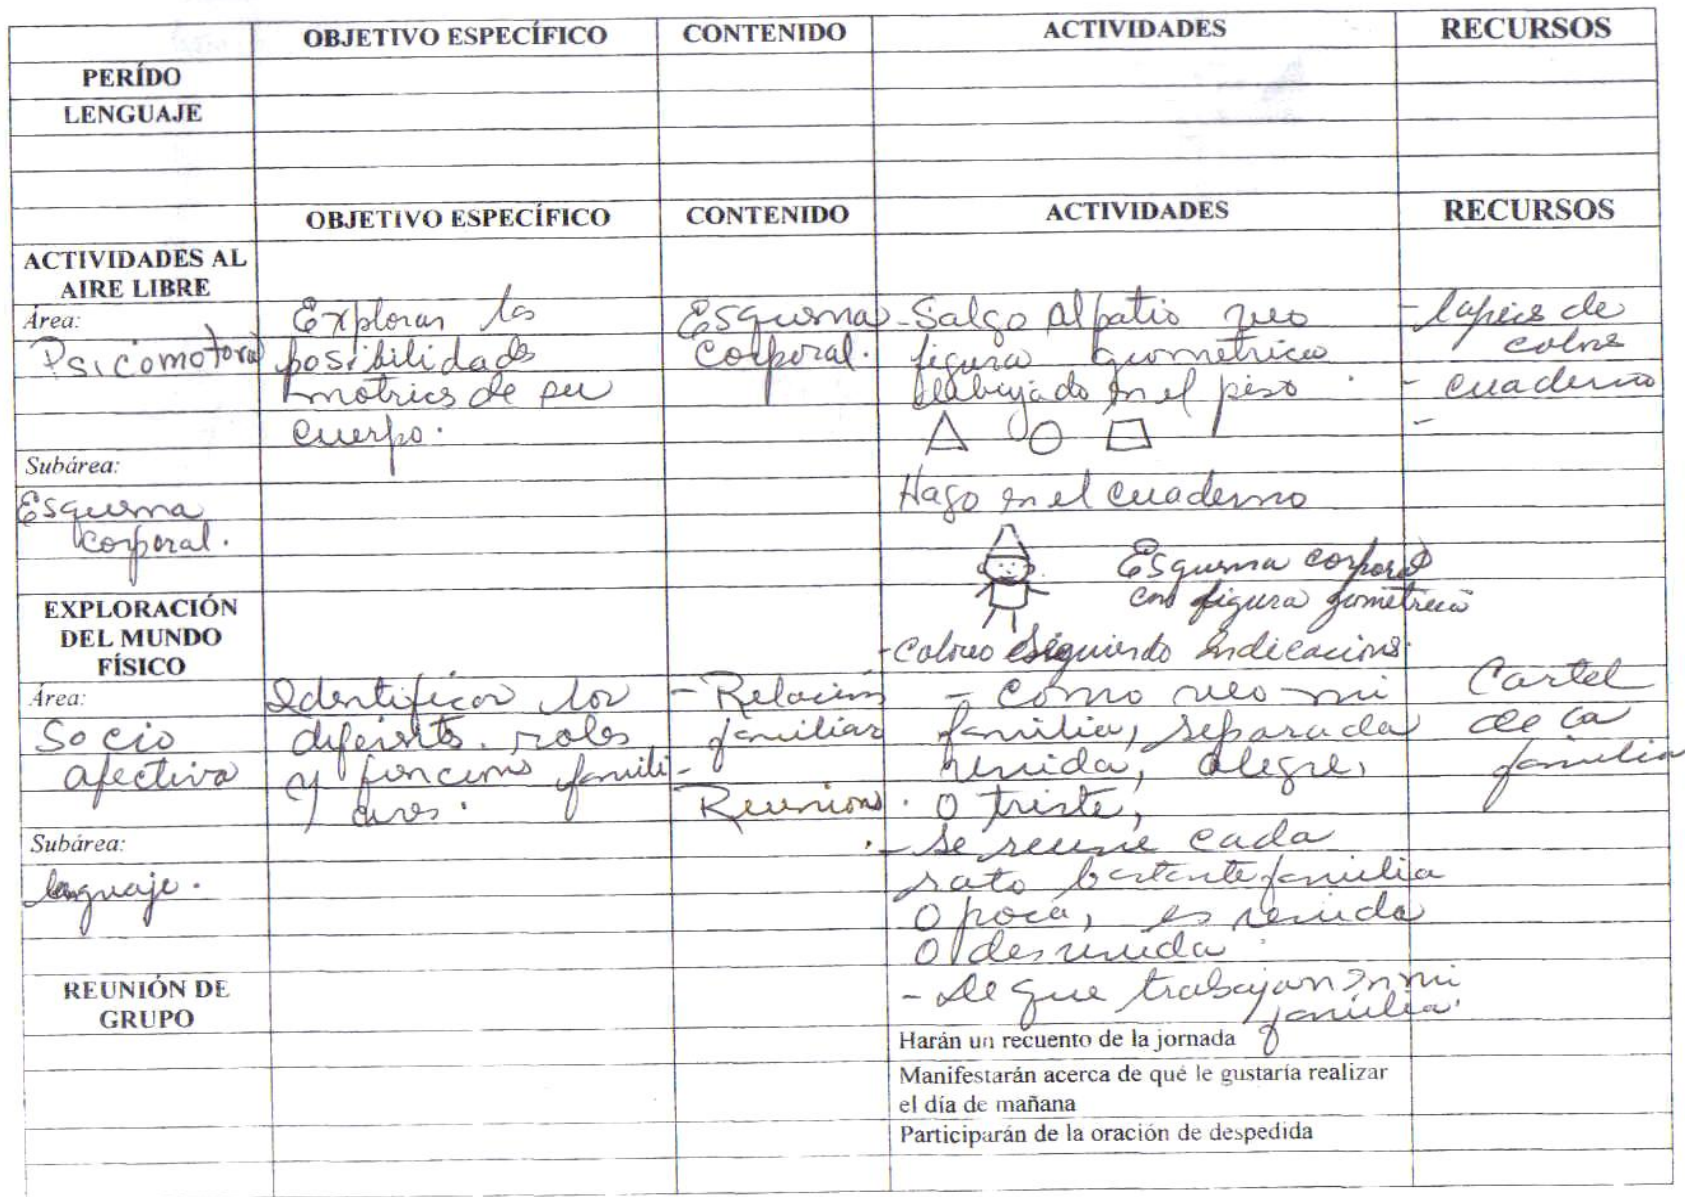 OBJETIVO ESPECÍFICO CONTENIDO ACTIVIDADES RECURSOS
PERÍDO
LENGUAJE
OBJETIVO ESPECÍFICO CONTENIDO ACTIVIDADES RECURSOS
ACTIVIDADES AL
AIRE LIBRE
Área:
Psicomotora
Subárea:
Esquema
corporal.
Explorar las
posibilidades
motrices de su
cuerpo.
Esquema
corporal.
- Salgo al patio veo
figura geometrica
dibujado en el piso
Hago en el cuaderno
Esquema corporal
con figura geometrica
- Coloreo siguiendo indicaciones.
- lapices de
colores
- cuaderno
-
EXPLORACIÓN
DEL MUNDO
FÍSICO
Área:
Socio
afectiva
Subárea:
lenguaje.
Identificar los
diferentes roles
y funciones famili-
ares.
- Relación
familiar
-
Reuniones.
- Como veo mi
familia, separada
unida, alegre,
o triste,
- se reune cada
rato bastante familia
o poca, es reunida
o desunida.
- De que trabajan en mi
familia.
Cartel
de la
familia
REUNIÓN DE
GRUPO
Harán un recuento de la jornada
Manifestarán acerca de qué le gustaría realizar
el día de mañana
Participarán de la oración de despedida